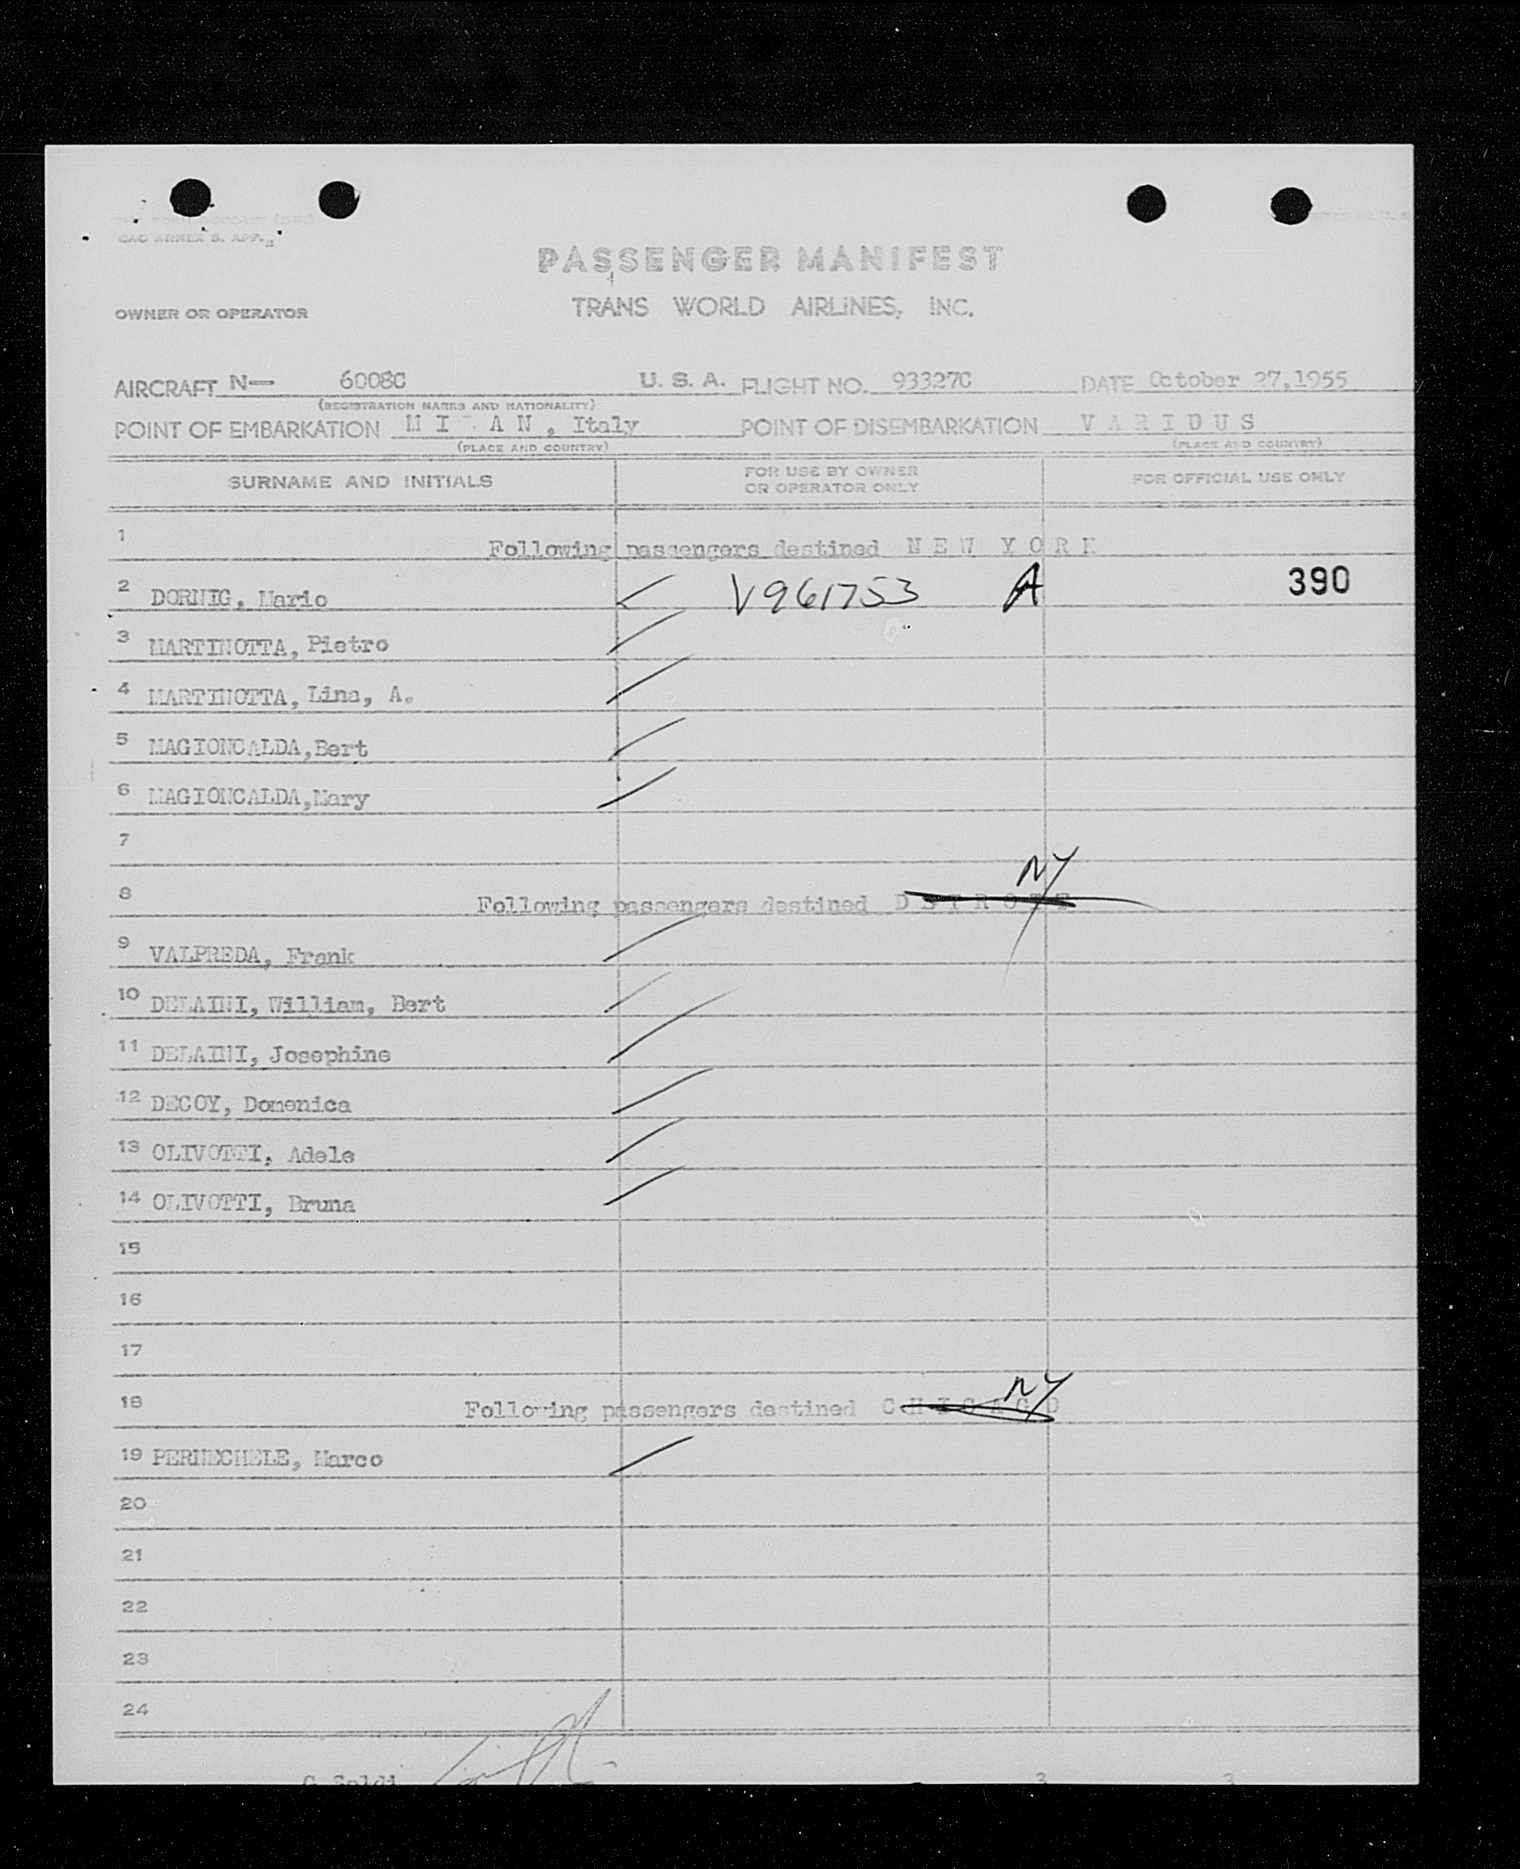 CAO ANNEX 9, APP.
PASSENGER MANIFEST
OWNER OR OPERATOR TRANS WORLD AIRLINES, INC.
AIRCRAFT N— 6008C U. S. A. FLIGHT NO. 93327C DATE October 27,1955
(REGISTRATION MARKS AND NATIONALITY)
POINT OF EMBARKATION M I L A N , Italy POINT OF DISEMBARKATION V A R I O U S
(PLACE AND COUNTRY) (PLACE AND COUNTRY)
SURNAME AND INITIALS FOR USE BY OWNER OR OPERATOR ONLY FOR OFFICIAL USE ONLY
1 Following passengers destined N E W Y O R K
2 DORNIG, Mario V961753 A 390
3 MARTINOTTA, Pietro
4 MARTINOTTA, Lina, A.
5 MAGIONCALDA,Bert
6 MAGIONCALDA,Mary
7
NY
8 Following passengers destined D E T R O I T
9 VALPREDA, Frank
10 DELAINI, William, Bert
11 DELAINI, Josephine
12 DECOY, Domenica
13 OLIVOTTI, Adele
14 OLIVOTTI, Bruna
15
16
17
NY
18 Following passengers destined C H I C A G O
19 PERNECHELE, Marco
20
21
22
23
24